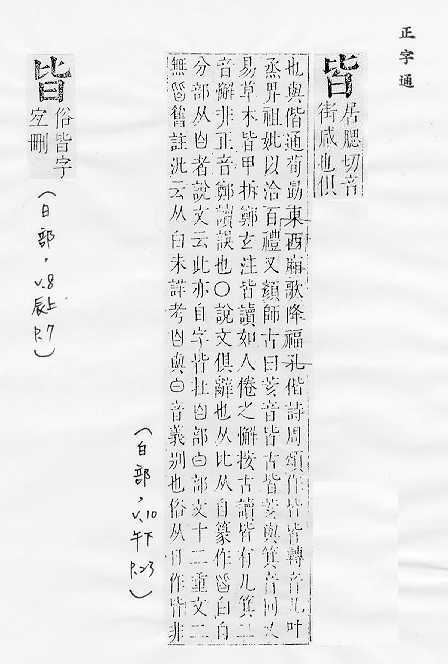 正字通
皆
居腮切音
街咸也俱
也與偕通荀勗東西廂歌隆福孔偕詩周頌作皆皆轉音几叶
烝畀祖妣以洽百禮又顏師古曰荄音皆古皆荄與箕音同又
易草木皆甲拆鄭玄注皆讀如人倦之懈按古讀皆有几箕二
音懈非正音鄭讀誤也〇說文俱辭也从比从自篆作皆白自
分部从白者說文云此亦自字皆在白部白部文十二重文二
無皆舊註汎云从白未詳考白與白音義別也俗从日作皆非
(白部,v.10
午下
P.23)
皆
俗皆字
宜刪
(日部,v.8
辰上
P.7)